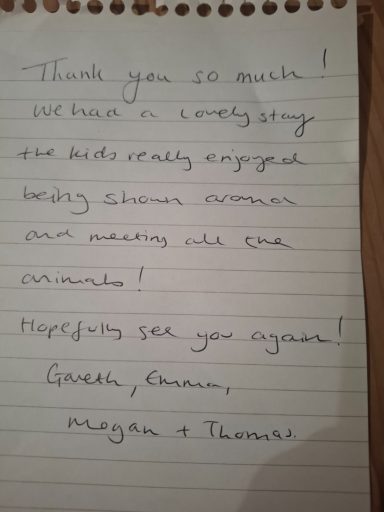 Thank you so much!
We had a lovely stay
the kids really enjoyed
being shown around
and meeting all the
animals!
Hopefully see you again!
Gareth, Emma,
Megan + Thomas.